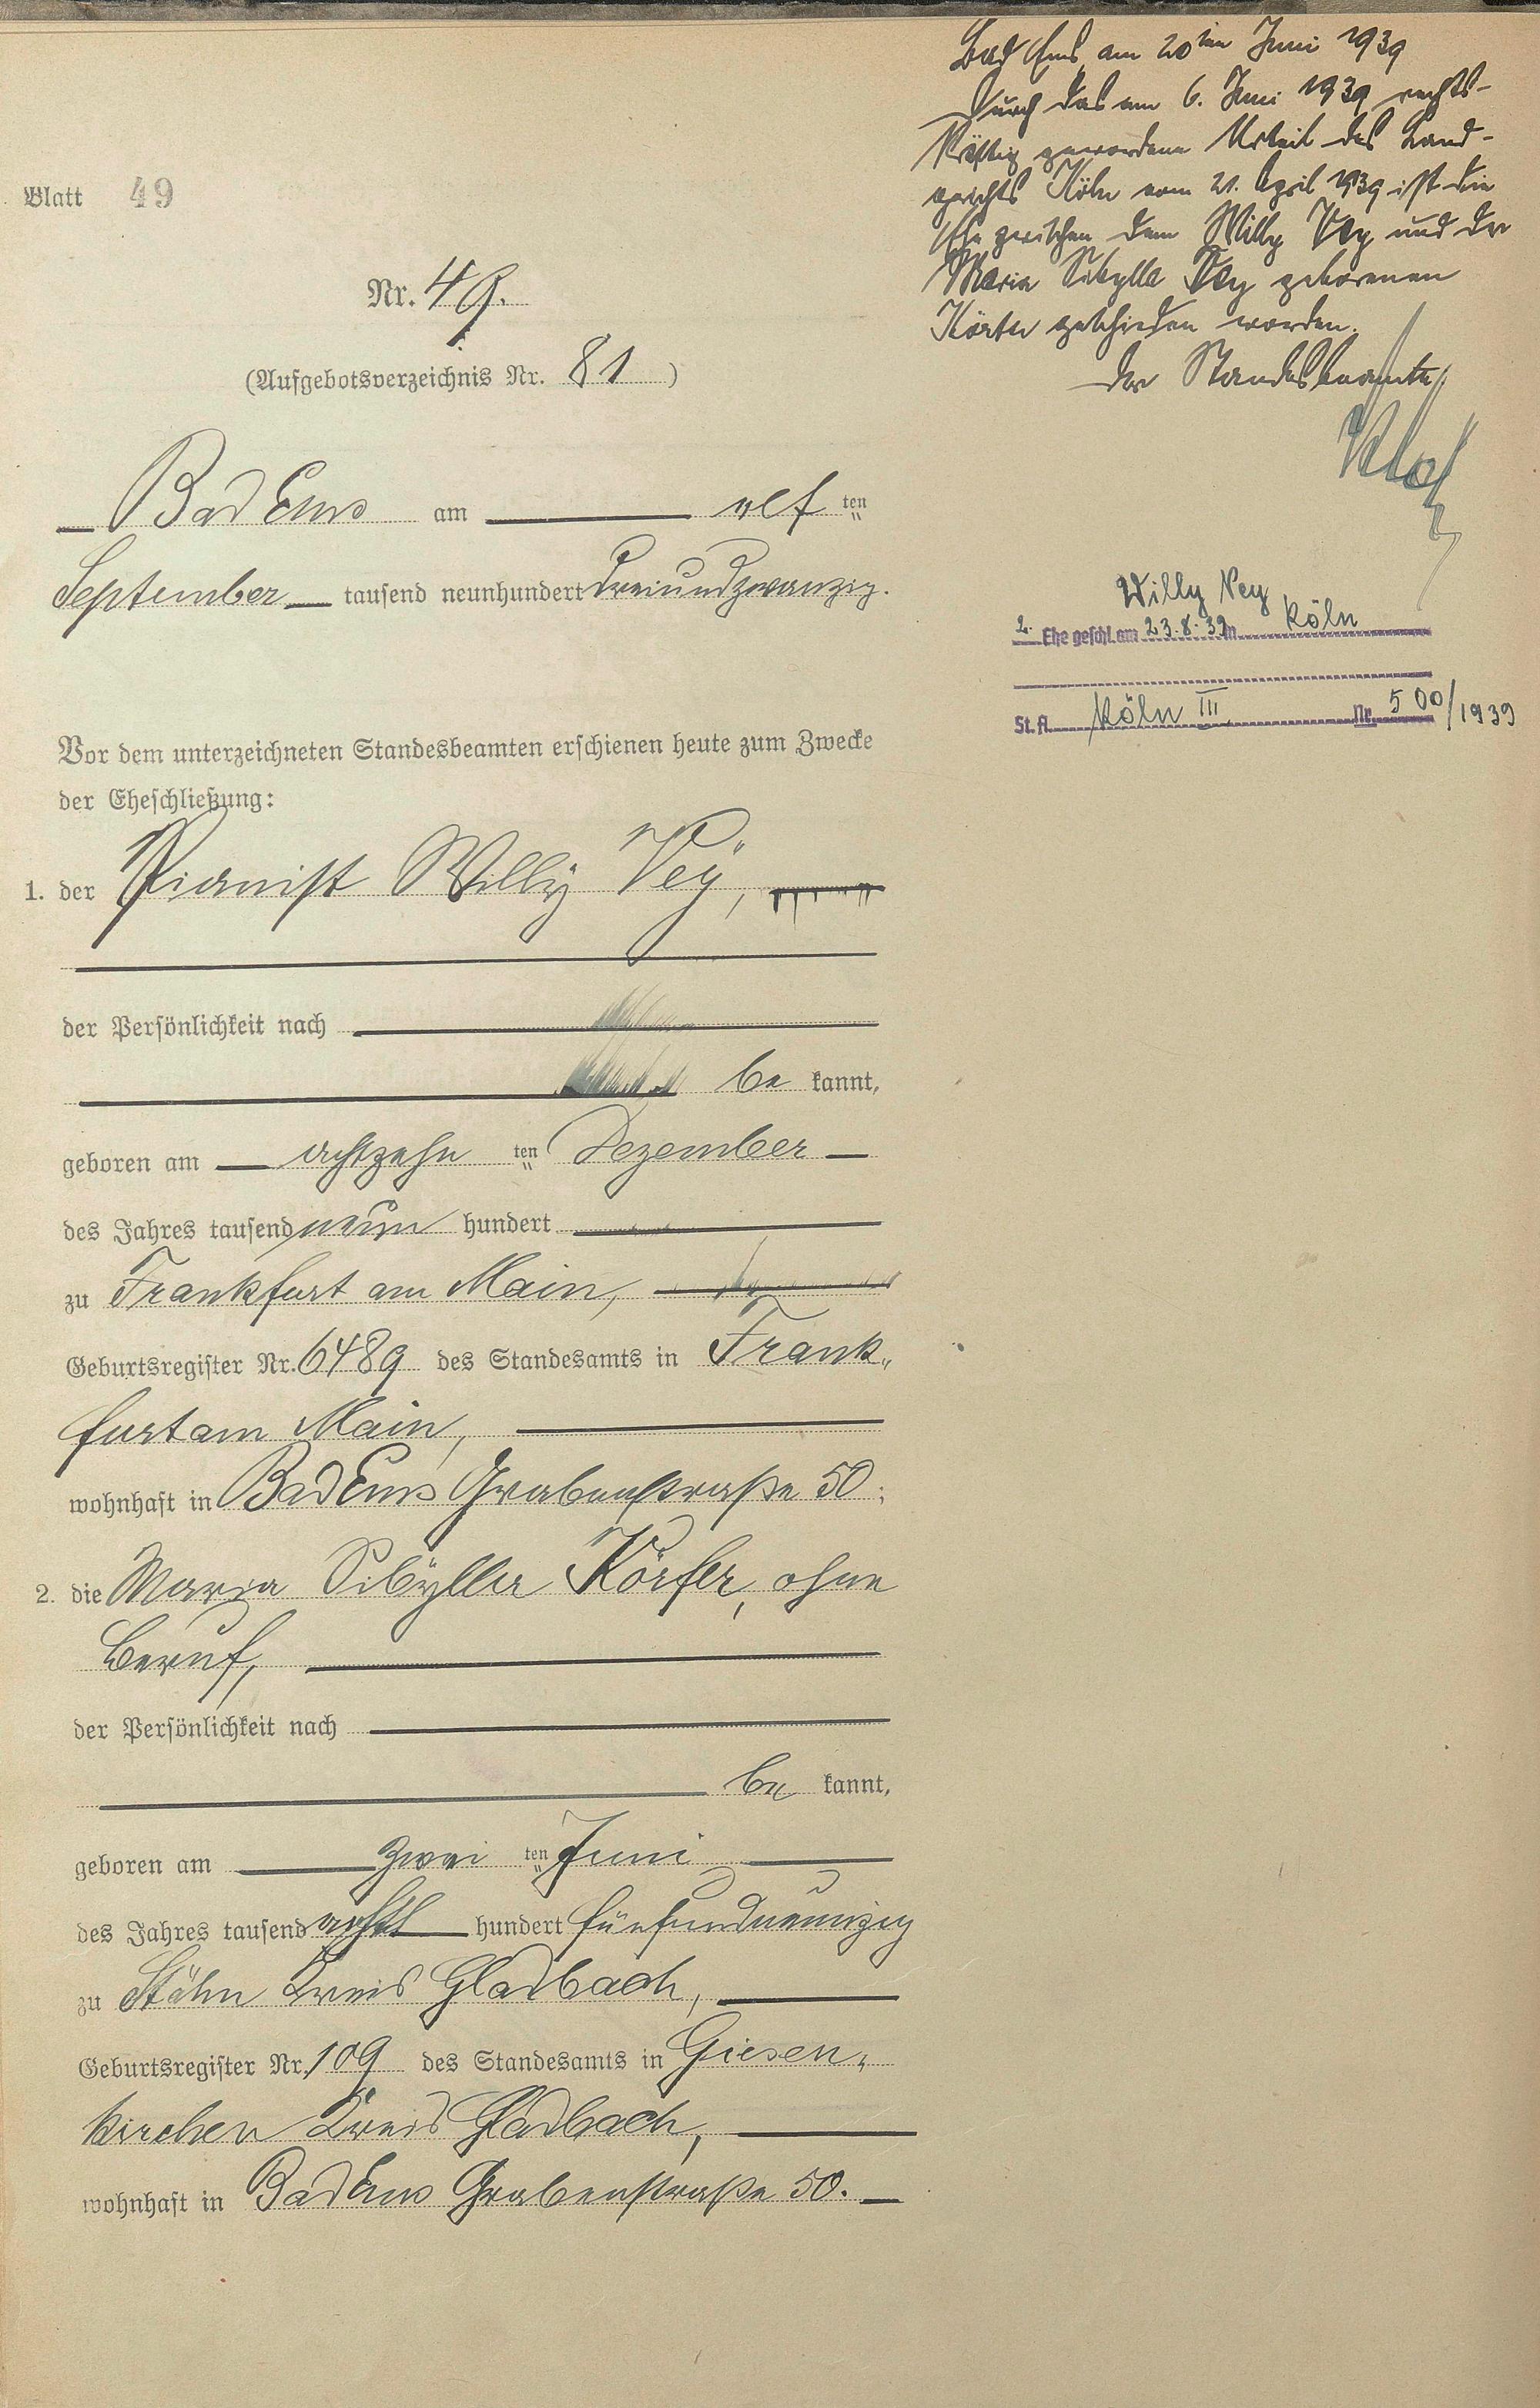 Blatt 49
Nr. 49.
(Aufgebotsverzeichnis Nr. 81)
Bad Ems am elf ten
September tausend neunhundert dreiundzwanzig.
Vor dem unterzeichneten Standesbeamten erschienen heute zum Zwecke
der Eheschließung:
1. der Pianist Willy Vey,
der Persönlichkeit nach
be kannt,
geboren am achtzehn ten Dezember
des Jahres tausend neun hundert
zu Frankfurt am Main,
Geburtsregister Nr. 6489 des Standesamts in Frank„
furt am Main,
wohnhaft in Bad Ems Grabenstraße 50;
2. die Maria Sibylla Körfer, ohne
Beruf,
der Persönlichkeit nach
be kannt,
geboren am zwei ten Juni
des Jahres tausend acht hundert fünfundneunzig
zu Kreis Gladbach,
Geburtsregister Nr. 109 des Standesamts in Giesen„
kirchen Kreis Gladbach,
wohnhaft in Bad Ems Grabenstraße 50.
Bad Ems, am 20ten Juni 1939
Durch das am 6. Juni 1939 rechts-
kräftig gewordene Urteil des Land-
gerichts Köln vom 21. April 1939 ist die
Ehe zwischen dem Willy Vey und der
Maria Sibylla Vey geborenen
Körfer geschieden worden.
Der Standesbeamte
Willy Vey
2. Ehe geschl. am 23.8.39 in Köln
St. A. Köln III Nr. 500/1939